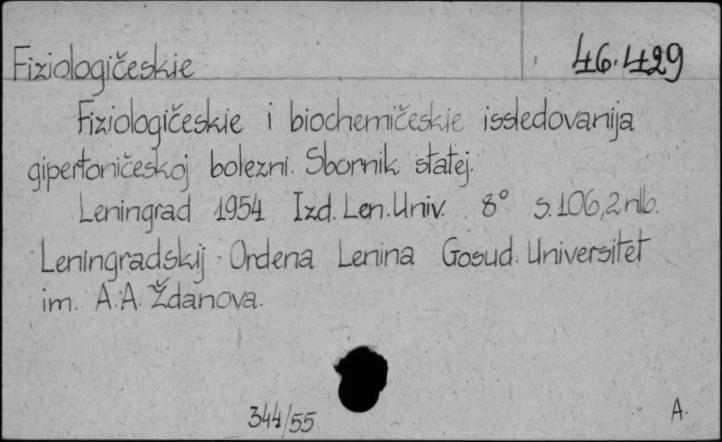 Fiziologičeskie 46.429
Fiziologičeskie i biochemičeskie issledovanija
gipertoničeskoj bolezni. Sbornik statej.
Leningrad 1954 Izd. Len. Univ. 8° s. 106, 2 nlb.
Leningradskij Ordena Lenina Gosud. Universitet
im. A.A. Ždanova.
344/55
A.